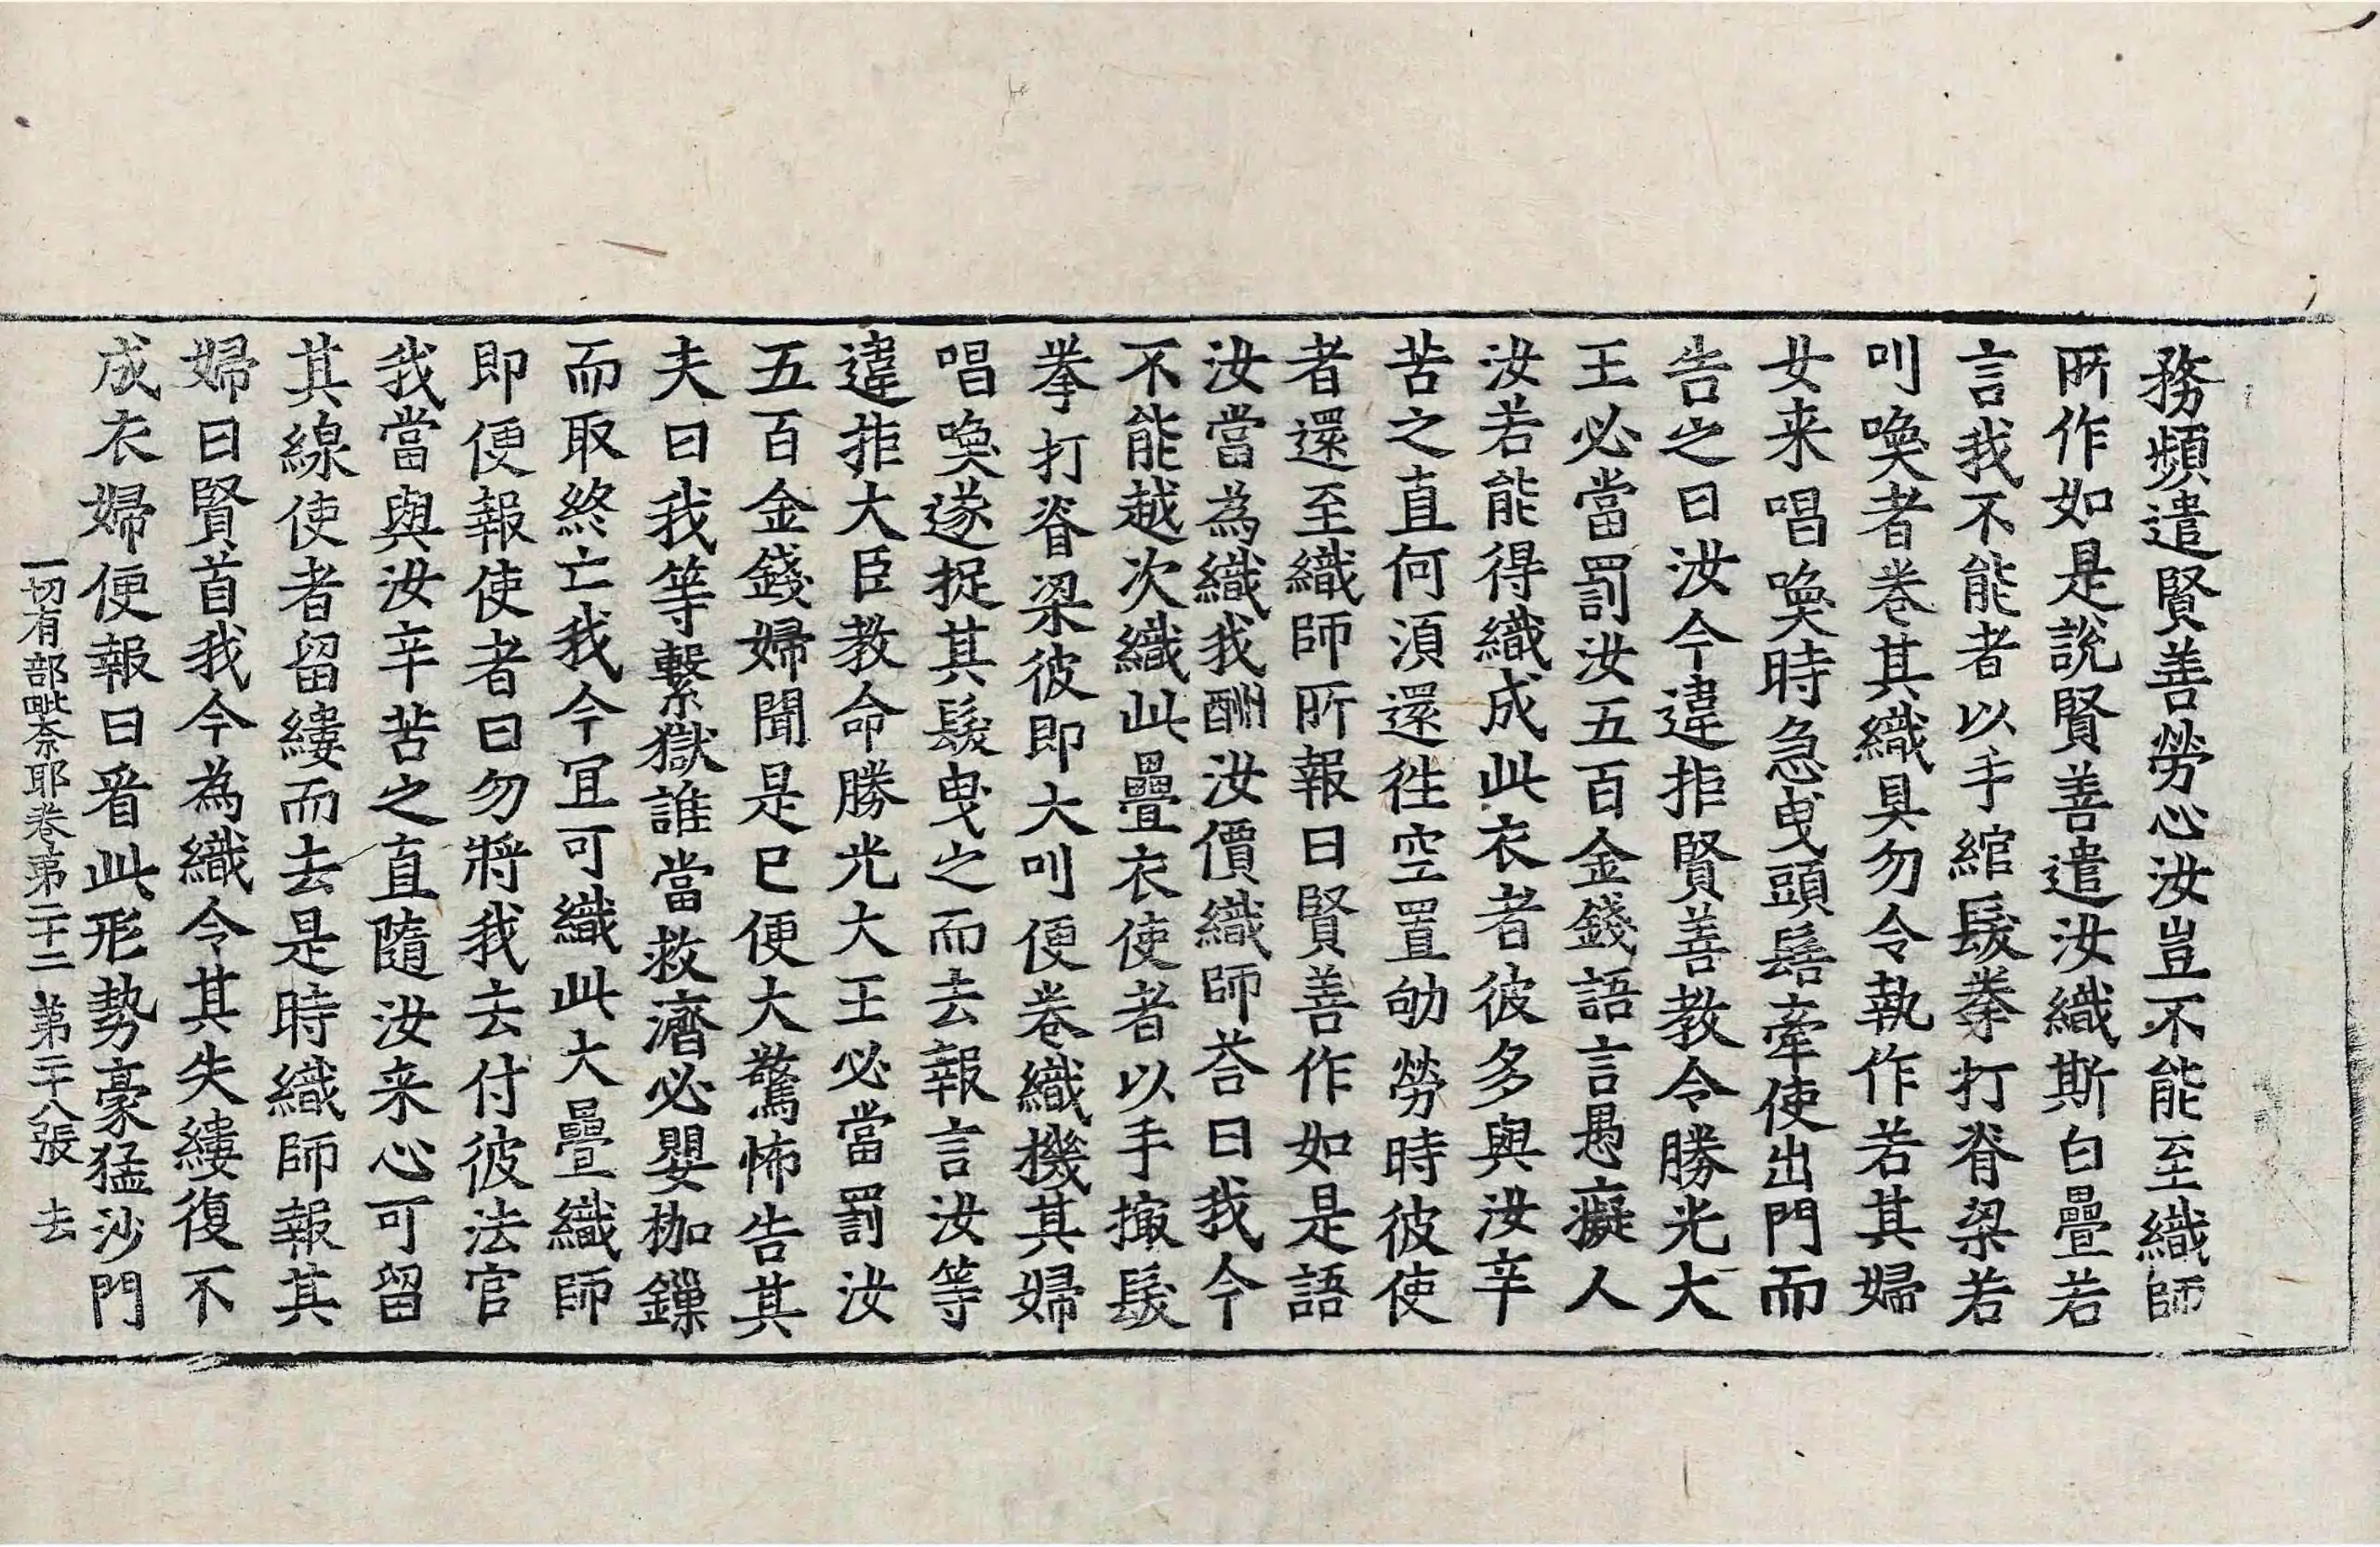 務頻遣賢善勞心汝豈不能至織師
所作如是說賢善遣汝織斯白疊若
言我不能者以手綰髮拳打脊梁若
叫喚者卷其織具勿令執作若其婦
女来唱喚時急曳頭髻牽使出門而
告之曰汝今違拒賢善教令勝光大
王必當罰汝五百金錢語言愚癡人
汝若能得織成此衣者彼多與汝辛
苦之直何須還往空置劬勞時彼使
者還至織師所報曰賢善作如是語
汝當為織我酬汝價織師荅曰我今
不能越次織此疊衣使者以手撮髮
拳打脊梁彼即大叫便卷織機其婦
唱喚遂捉其髮曳之而去報言汝等
違拒大臣教命勝光大王必當罰汝
五百金錢婦聞是已便大驚怖告其
夫曰我等繫獄誰當救濟必嬰枷鏁
而取終亡我今冝可織此大疊織師
即便報使者曰勿將我去付彼法官
我當與汝辛苦之直隨汝来心可留
其線使者留縷而去是時織師報其
婦曰賢首我今為織令其失縷復不
成衣婦便報曰看此形勢豪猛沙門
一切有部毗奈耶卷第二十二 第二十八張 去